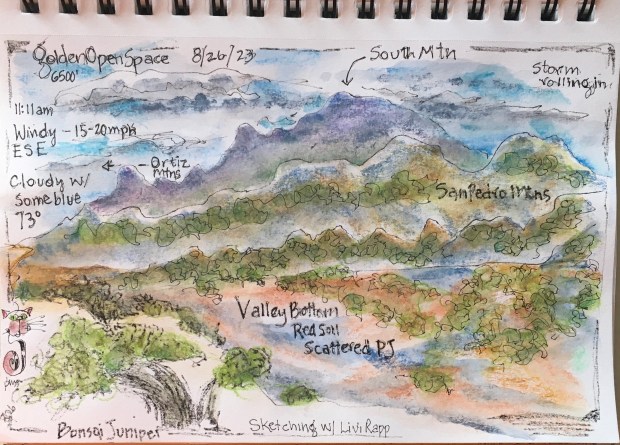 Golden Open Space 8/26/23
6500'
South Mtn
Storm
rolling in
11:11am
Windy - 15-20mph
ESE
← - Ortiz
Mtns
Cloudy w/
some blue
73°
San Pedro Mtns
Valley Bottom
Red Soil
Scattered PJ
Bonsai Juniper
Sketching w/ Livi Rapp